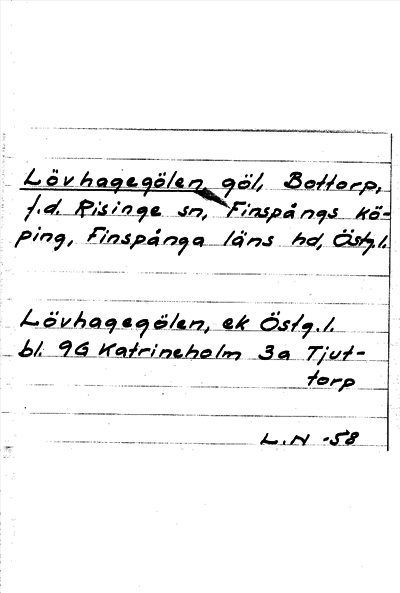 Lövhagegölen, göl, Bottorp,
f.d. Risinge sn, Finspångs kö-
ping, Finspånga läns hd, Östg.l.
Lövhagegölen, ek Östg.l.
bl. 9G Katrineholm 3a Tjut-
torp
L.N -58